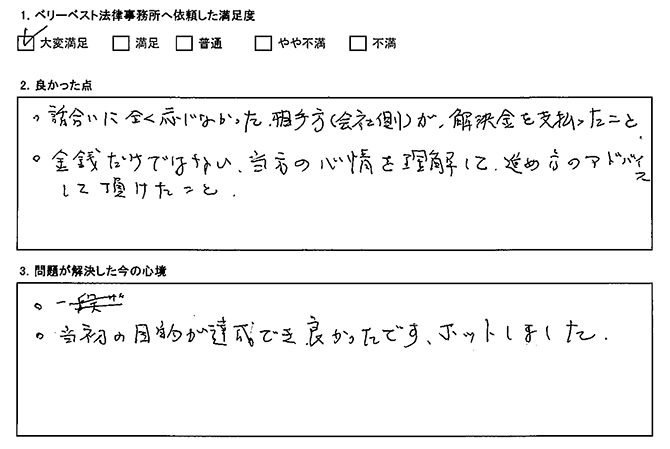 1. ベリーベスト法律事務所へ依頼した満足度
☑ 大変満足 □ 満足 □ 普通 □ やや不満 □ 不満
2. 良かった点
○ 話合いに全く応じなかった、相手方(会社側)が、解決金を支払ったこと、
○ 金銭だけではない、当方の心情を理解して、進め方のアドバイス
して頂けたこと.
3. 問題が解決した今の心境
○ 一
○ 当初の目的が達成でき良かったです、ホットしました.